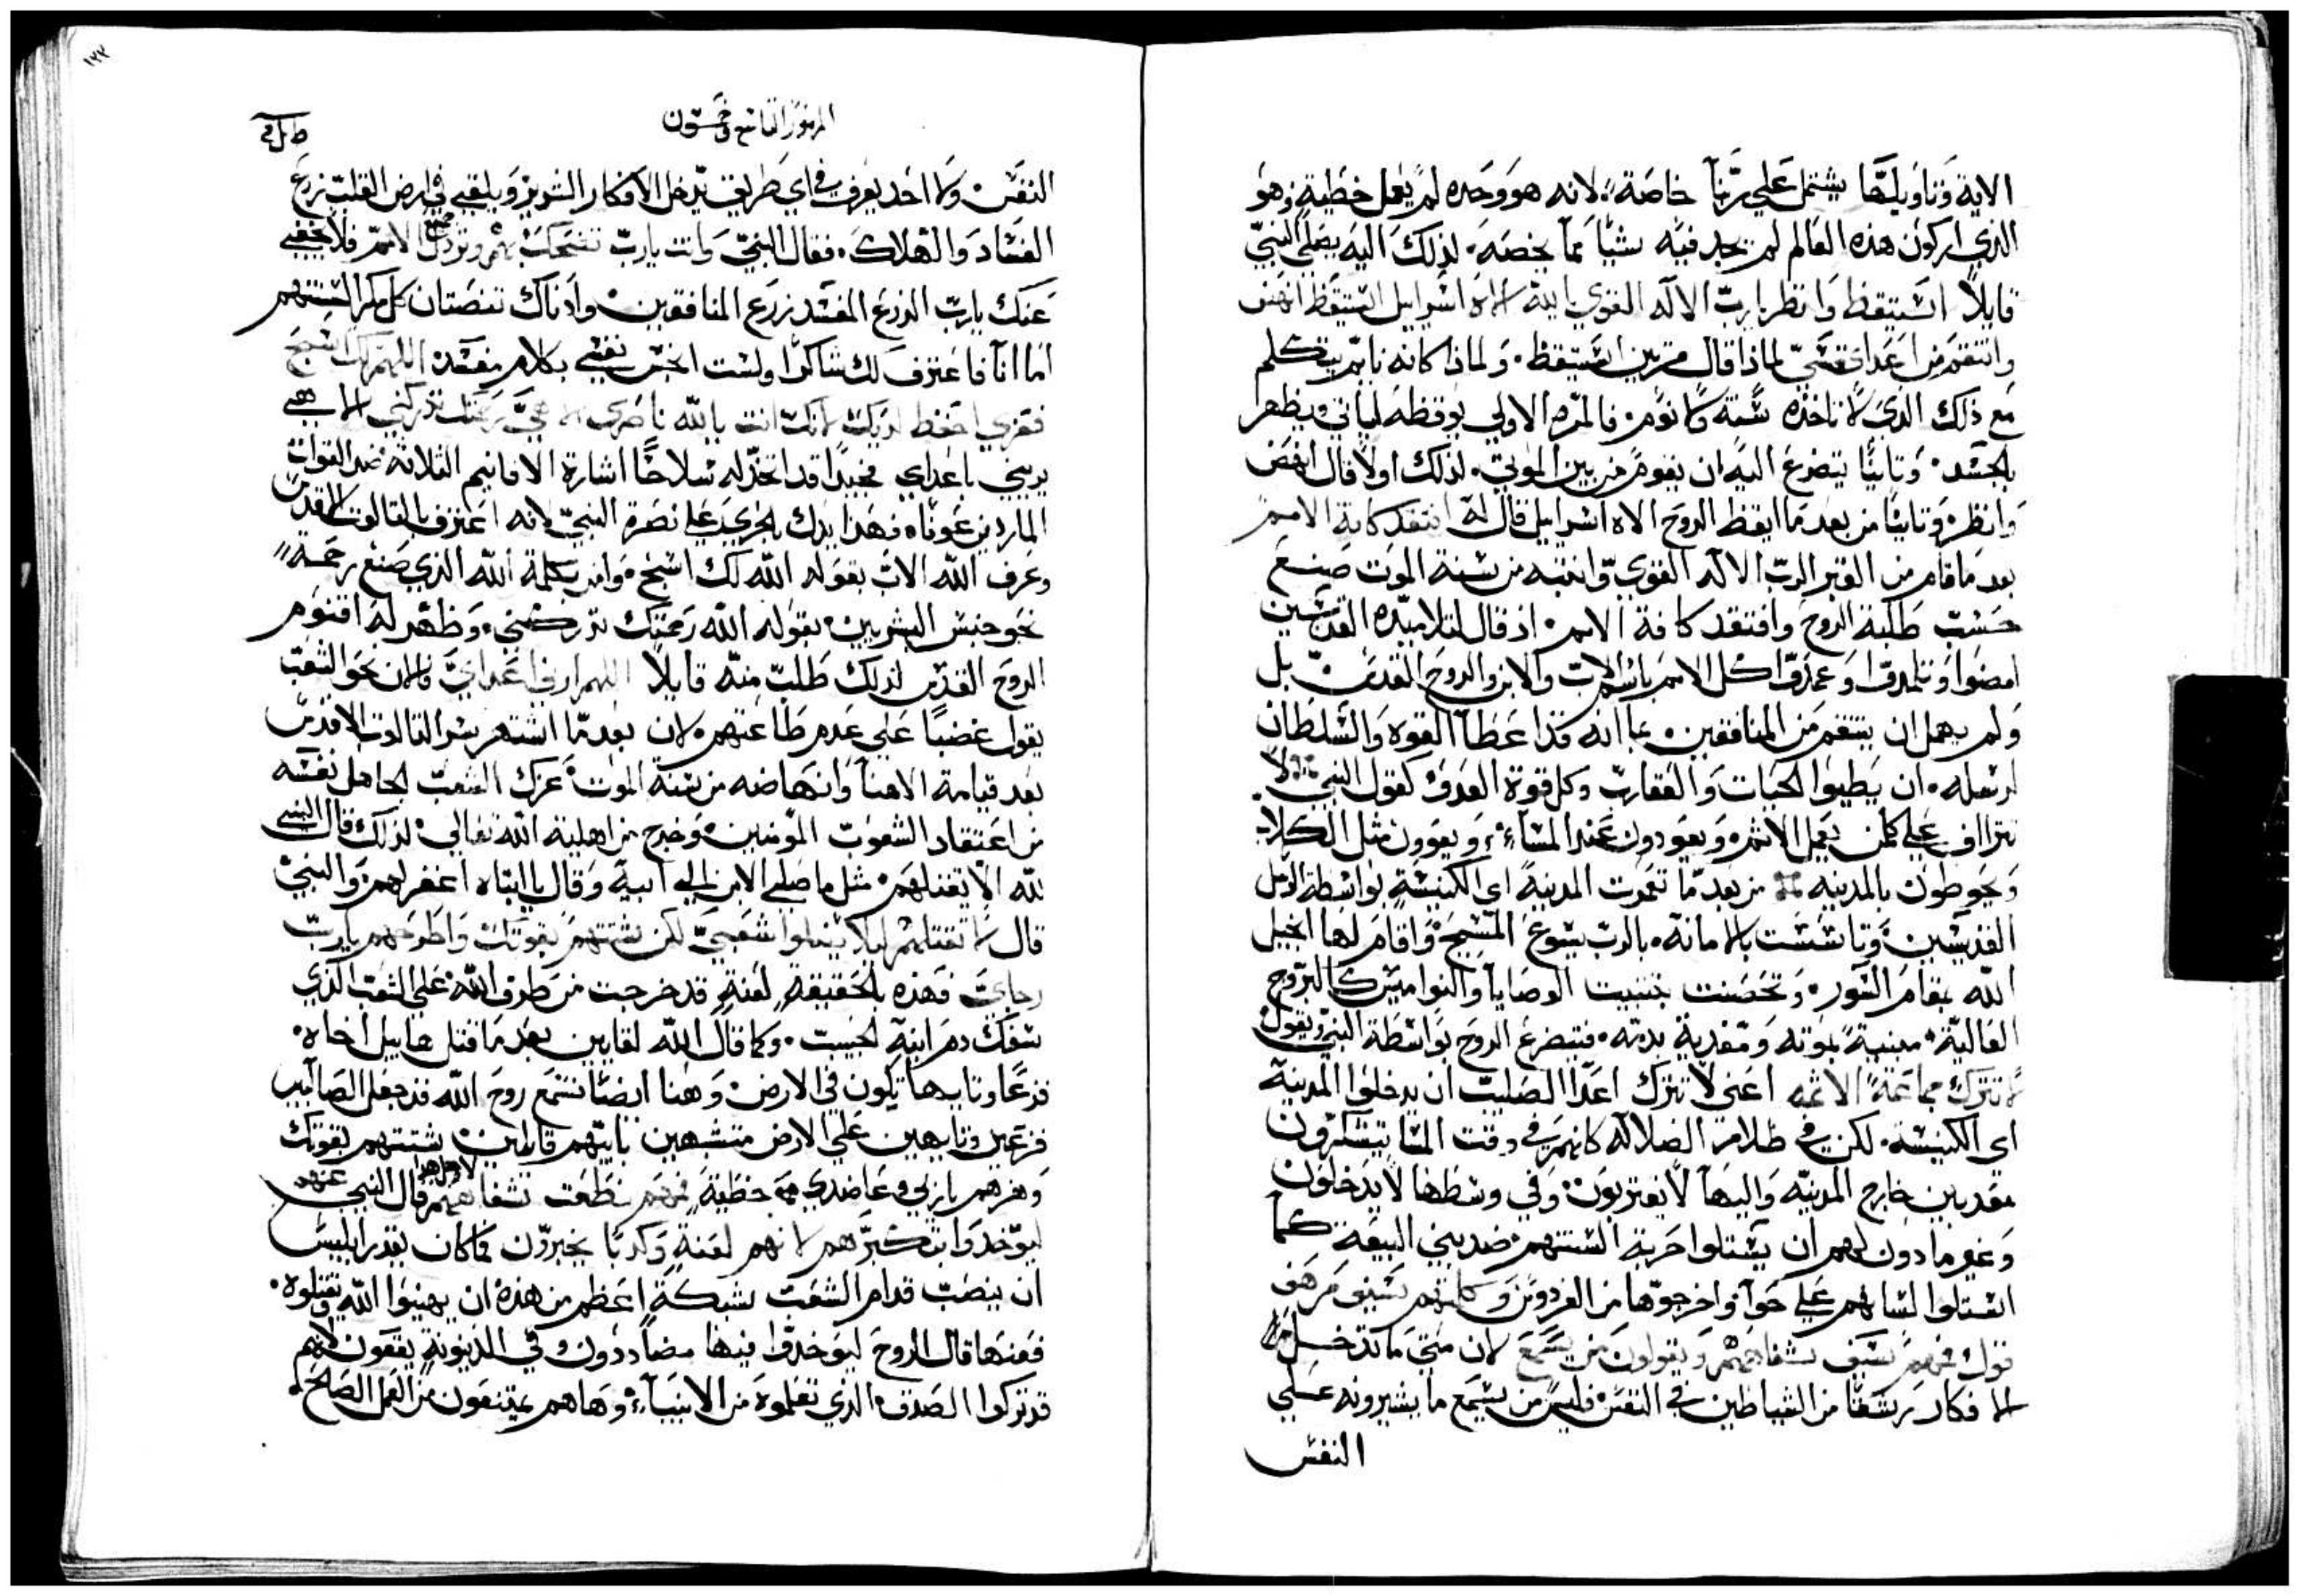 الاية وتاويلها يشتمل علي ربنا خاصة، لانه هو وحده لم يعمل خطية وهو
الذي اركون هذه العالم لم يجد فيه شيا مما يخصه. لذلك اليه يصلي النبي
قايلا استيقظ وانظر يارب الاله القوي يا اله اسراييل استيقظ انهض
وانتقم من اعداي فعسي لماذا قال مرتين استيقظ. ولماذا كانه نايم يتكلم
مع ذلك الذي لا تاخذه سنة ولا نوم. فالمره الاولي يوقظه لياتي ويظهر
بالجسد. وثانيا يتضرع اليه ان يقوم من بين الموتي. لذلك اولا قال انهض
وانظر. وثانيا من بعد ما ايقظ الروح الاه اسراييل قال له افتقد كافة الامم
بعد ما قام من القبر الرب الاله القوي وانتبه من سنة الموت صنع
حسب طلبة الروح وافتقد كافة الامم. اذ قال لتلاميذه القديسين
امضوا وتلمدوا وعمدوا كل الامم باسم الاب والابن والروح القدس. بل
ولم يهمل ان ينتقم من المنافقين. بما انه قد اعطا القوه والسلطان
لرسله. ان يطيوا الحيات والعقارب وكل قوة العدو. كقول النبي. لا
تتراف علي كلمن يعمل الاثم. ويعودون عند المساء، ويعوون مثل الكلاب
ويحوطون بالمدينه من بعد ما تعمرت المدينة اي الكنيسة بواسطة الرسل
القديسين. وتاسست بالامانه. بالرب يسوع المسيح. واقام لها انجيل
الله بمقام السور. وتحصنت بتثبيت الوصايا والنواميس كالبروج
العالية. مبنية بموته ومفدية بدمه. فيتضرع الروح بواسطة النبي ويقول
لا تترك مجامعة الاثمه اعني لا تترك اعدا الصليب ان يدخلوا المدينة
اي الكنيسة. لكن في ظلامة الضلاله كانهم في وقت المسا يتسكرون
مقدبين خارج المدينه واليها لا يقتربون. وفي وسطها لا يدخلون
وغير مادون لهم ان يستلوا حربة السنتهم. ضد بني البيعة كما
استلوا لسانهم علي حوا. واخرجوها من الفردوس وكلمتهم بسيف مرهف
قوله فمهم بسيف بشفاههم ويقولون من يسمع لان متي ما تدخل
الافكار ترشقا من الشياطين في النفس فليس من يسمع ما يشيرونه علي
النفس
المزمور الثامن وخمسون
النفس. ولا احد يعرف في اي طريق تدخل الافكار الشويرة ويلقي في ارض القلب زرع
الفساد والهلاك. فقال النبي وانت يارب تضحك بهم وتردل جميع الامم فلا يخفي
عنك يارب الزرع المفسد زرع المنافقين. واذناك تنصتان كل مكر السنتهم
اما انا فاعترف لك شاكرا ولست انجس نفسي بكلام مفسد اللهم لك اسبح
فقوي احفظ لديك لانك انت يا الله ناصري الاهي رحمتك تدركني الاهي
يريني باعداي مجيدا قد اتخذ له سلاحا اشارة الاقانيم الثلاثة ضد القوات
الماردين عوناه. فهذا يدلك بالحري علي نصرة النبي لانه اعترف بالثالوت الاقدس
وعرف الله الاب بقوله الله لك اسبح. وامن بكلمة الله الذي صنع رحمة
نحو جنس البشريين. بقوله الله رحمتك تدركني. وظهر له اقنوم
الروح القدس لذلك طلب منه قايلا اللهم ارني اعداي فالان نحو الشعب
يقول غضبا علي عدم طاعتهم. لان بعد ما اشتهر سر الثالوت الاقدس
بعد قيامة الاهنا وانهاضه من سنة الموت، عزك الشعب الجاهل نفسه
من اعتقاد الشعوب المومنين. وخرج من اهلية الله تعالي. لذلك قال النبي
لله الا تقتلهم. مثل ما صلي الابن الي ابيه وقال يا ابتاه اغفر لهم. والنبي
قال لا تقتلهم ليلا ينسلوا شعبي لكن شتتهم بقوتك واطرحهم يارب
رجاي. فهذه بالحقيقة لعنة قد خرجت من طرف الله علي الشعب الذي
سفك دم ابنه الحبيب. وكما قال الله لقايين بعد ما قتل هابيل اخاه.
فزعا وتايها تكون في الارض. وهنا ايضا نسمع روح الله قد جعل الصالبين
فزعين وتايهين علي الارض متشبهين باتهم قايلين. شتتهم بقوتك
وهزهم يا ربي وعاضدي خطية فمهم نطقت شفاههم لاجل هذا قال النبي عنهم
ليوخذوا بتكبرهم لانهم لعنة وكدبا يخبرون فما كان يقدر ابليس
ان ينصب قدام الشعب بشبكة اعظم من هذه. ان يهينوا الله ويقتلوه.
فعندها قال الروح ليوخذوا فيها مضاددون وفي الدينونة يقعون لانهم
قد تركوا الصدق. الذي تعلموه من الانبياء. وها هم يمتنعون من العمل الصالح.